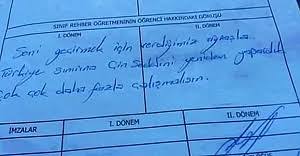 SINIF REHBER ÖĞRETMENİNİN ÖĞRENCİ HAKKINDAKİ GÖRÜŞÜ
I. DÖNEM II. DÖNEM
Seni geçirmek için verdiğimiz uğraşla
Türkiye sınırına Çin Seddini yeniden yapardık
Çok çok daha fazla çalışmalısın.
İMZALAR I. DÖNEM II. DÖNEM